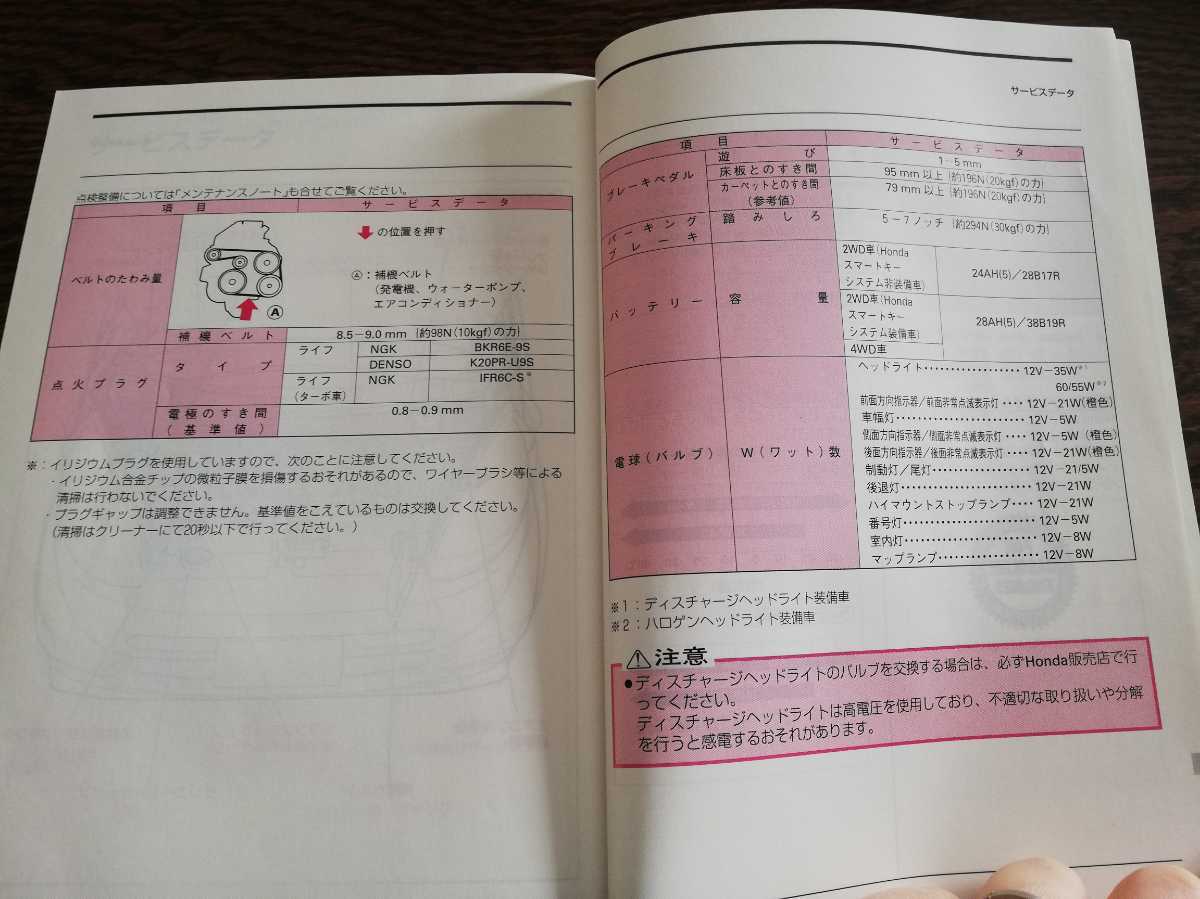 サービスデータ
点検整備については「メンテナンスノート」も合せてご覧ください。
項目 サービスデータ
ベルトのたわみ量
の位置を押す
Ⓐ：補機ベルト
（発電機、ウォーターポンプ、
エアコンディショナー）
Ⓐ
補機ベルト 8.5－9.0 mm {約98N(10kgf)の力}
点火プラグ タイプ ライフ NGK BKR6E-9S
DENSO K20PR-U9S
ライフ（ターボ車） NGK IFR6C-S※
電極のすき間（基準値） 0.8－0.9 mm
※：イリジウムプラグを使用していますので、次のことに注意してください。
・イリジウム合金チップの微粒子膜を損傷するおそれがあるので、ワイヤーブラシ等による
清掃は行わないでください。
・プラグギャップは調整できません。基準値をこえているものは交換してください。
（清掃はクリーナーにて20秒以下で行ってください。）
サービスデータ
項目 サービスデータ
ブレーキペダル 遊び 1－5 mm
床板とのすき間 95 mm 以上 {約196N(20kgf)の力}
カーペットとのすき間（参考値） 79 mm 以上 {約196N(20kgf)の力}
パーキングブレーキ 踏みしろ 5－7ノッチ {約294N(30kgf)の力}
バッテリー 容量 2WD車（Honda
スマートキー
システム非装備車） 24AH(5)／28B17R
2WD車（Honda
スマートキー
システム装備車） 28AH(5)／38B19R
4WD車
電球（バルブ） W（ワット）数
ヘッドライト・・・・・・・・・・・・・・・・・・ 12V－35W※1
60/55W※2
前面方向指示器／前面非常点滅表示灯・・・・ 12V－21W（橙色）
車幅灯・・・・・・・・・・・・・・・・・・・・・・・・ 12V－5W
側面方向指示器／側面非常点滅表示灯・・・・ 12V－5W（橙色）
後面方向指示器／後面非常点滅表示灯・・・・ 12V－21W（橙色）
制動灯／尾灯・・・・・・・・・・・・・・・・・・ 12V－21/5W
後退灯・・・・・・・・・・・・・・・・・・・・・・・・ 12V－21W
ハイマウントストップランプ・・・・ 12V－21W
番号灯・・・・・・・・・・・・・・・・・・・・・・・・ 12V－5W
室内灯・・・・・・・・・・・・・・・・・・・・・・・・ 12V－8W
マップランプ・・・・・・・・・・・・・・・・・・ 12V－8W
※1：ディスチャージヘッドライト装備車
※2：ハロゲンヘッドライト装備車
⚠注意
●ディスチャージヘッドライトのバルブを交換する場合は、必ずHonda販売店で行
ってください。
ディスチャージヘッドライトは高電圧を使用しており、不適切な取り扱いや分解
を行うと感電するおそれがあります。